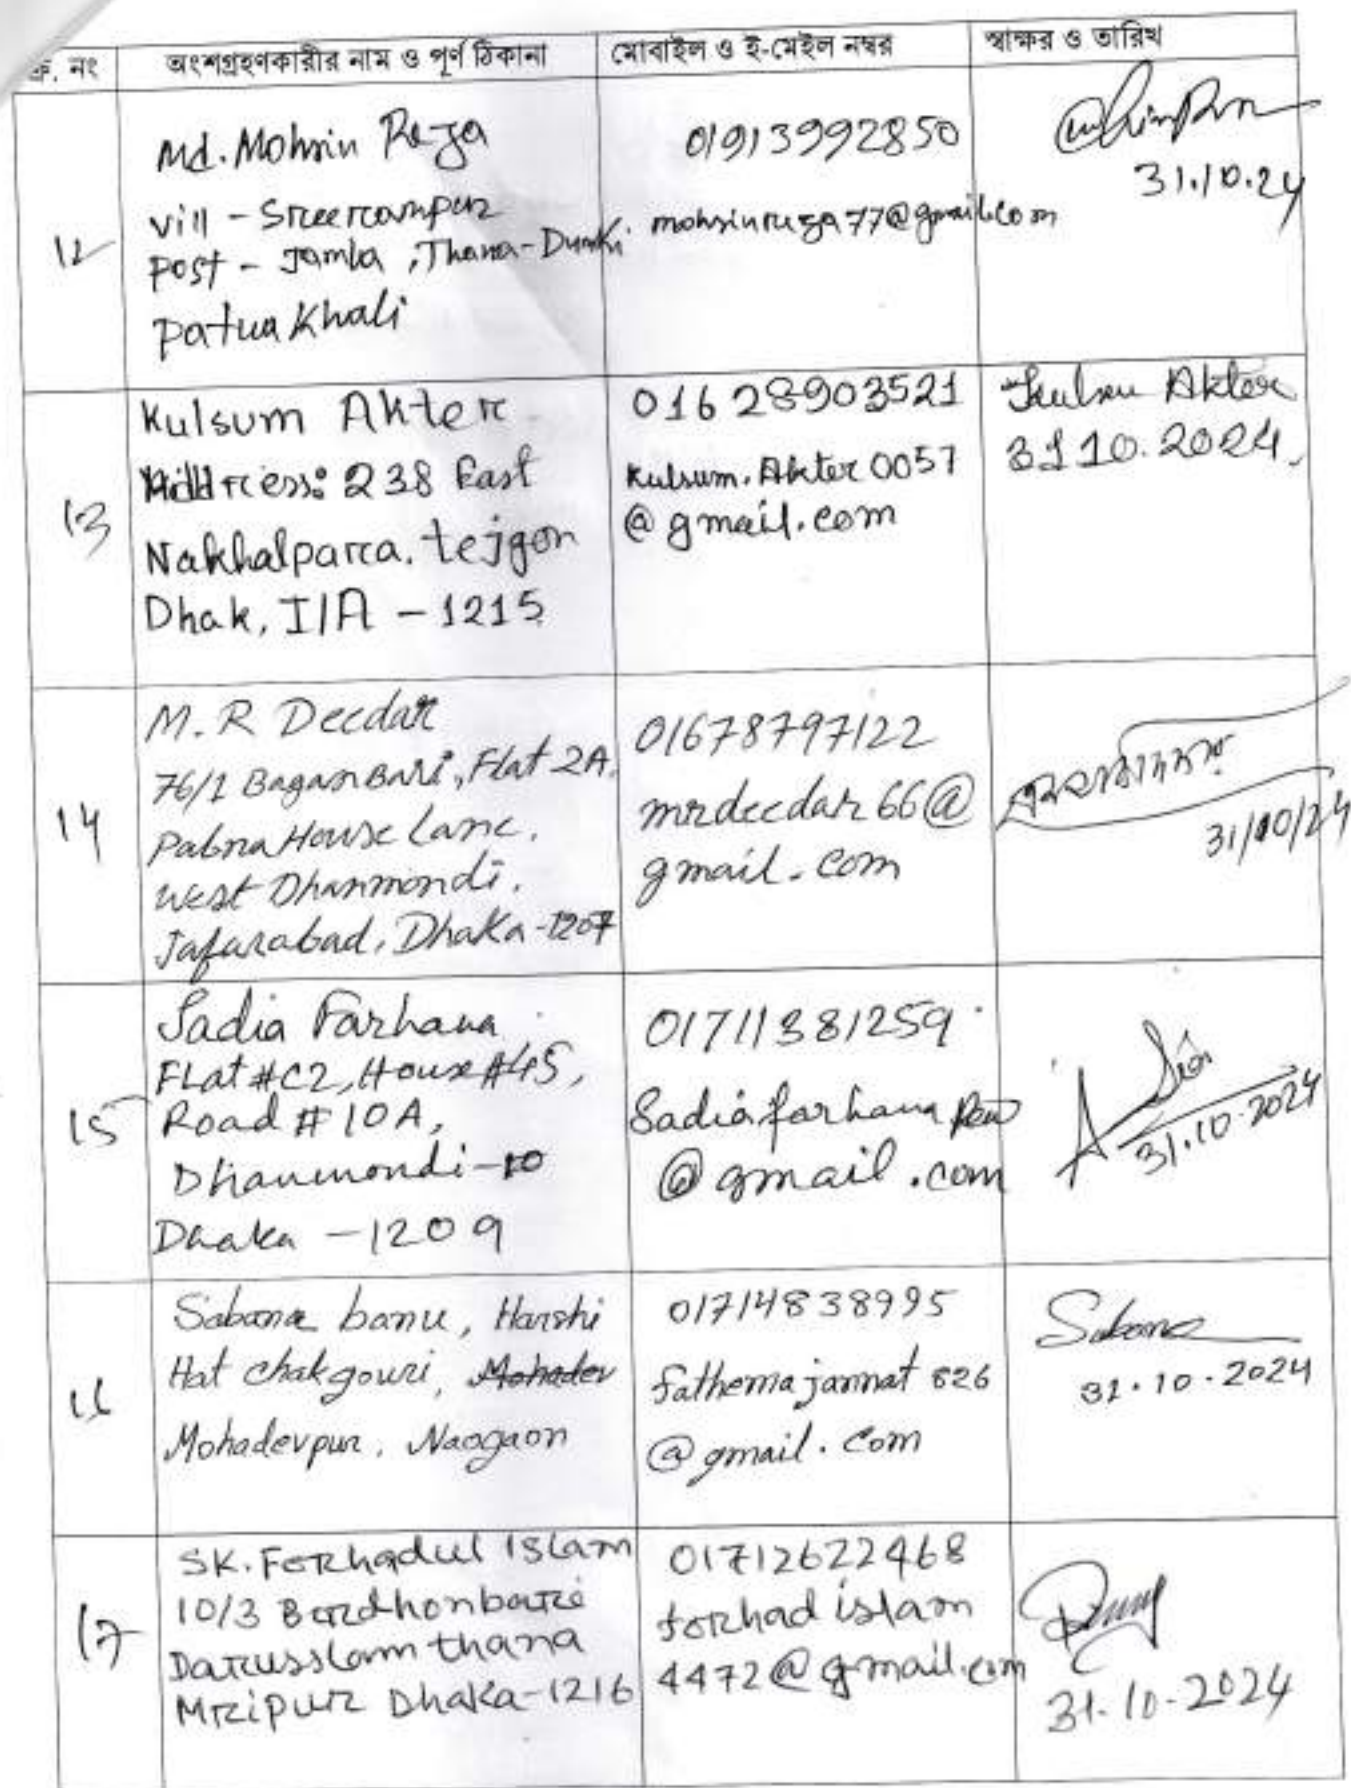 ক্র. নং অংশগ্রহণকারীর নাম ও পূর্ণ ঠিকানা মোবাইল ও ই-মেইল নম্বর স্বাক্ষর ও তারিখ
12
Md. Mohsin Reza
vill - Sreerampur
post - Jamla, Thana - Dumki
Patua Khali
01913992850
mohsinreza77@gmail.com
31.10.24
13
Kulsum Akter
Address: 238 East
Nakhalpara. tejgon
Dhak, I/A - 1215
01628903521
Kulsum.Akter0057
@gmail.com
Kulsum Akter
31.10.2024
14
M. R Deedar
76/1 Bagan Bari, Flat 2A.
Pabna House Lane.
West Dhanmondi.
Jafarabad, Dhaka-1207
01678797122
mrdeedar66@
gmail.com
31/10/24
15
Sadia Farhana
FLat #C2, House #45,
Road # 10A,
Dhanmondi-
Dhaka - 1209
01711381259
Sadiafarhana
@gmail.com
31.10.2024
16
Sabana banu, Harshi
Hat chakgouri, Mohadev
Mohadevpur, Naogaon
01714838995
fathemajannat 826
@gmail.com
Sabana
31.10.2024
17
SK. Forhadul Islam
10/3 Bardhonbari
Darusslam thana
Mripur Dhaka-1216
01712622468
forhad islam
4472@gmail.com
31-10-2024